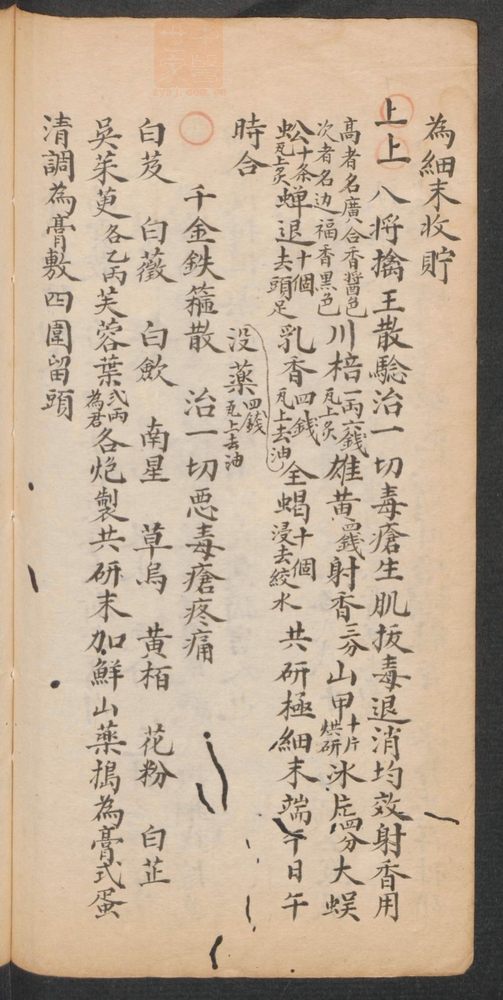 為細末收貯
上上 八將擒王散驗治一切毒瘡生肌拔毒退消均效射香用
高者名廣合香醬色次者名边福香黑色 川棓一両六錢瓦上炙 雄黄四錢 射香三分 山甲十片烘研 冰片四分 大蜈
蚣十条瓦上炙 蟬退十個去頭足 乳香四錢瓦上去油 全蝎十個浸去絞水 共研極細末端午日午
時合 没藥四錢瓦上去油
千金鉄箍散 治一切悪毒瘡疼痛
白芨 白薇 白歛 南星 草烏 黄栢 花粉 白芷
吳茱萸各乙両 芙蓉葉弍両為君 各炮製共研末加鮮山藥搗為膏式蛋
清調為膏敷四圍留頭